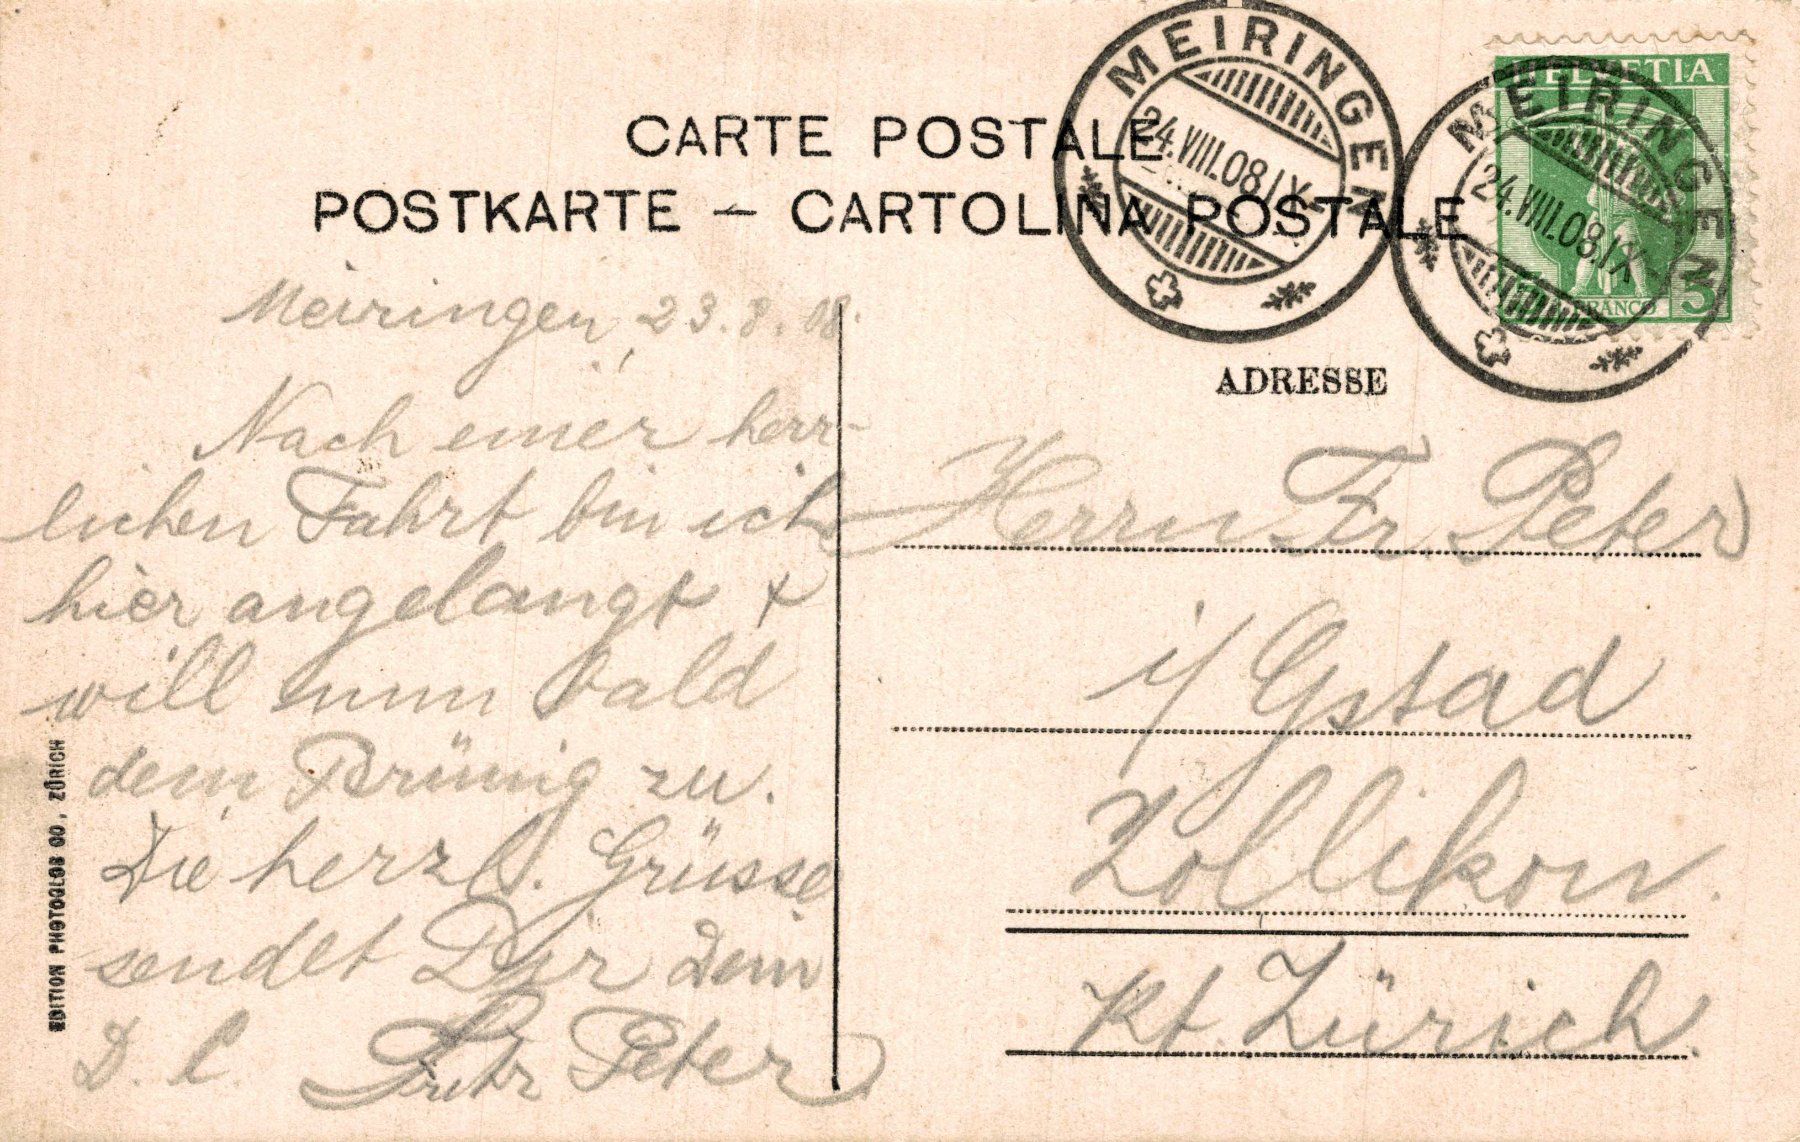 CARTE POSTALE
POSTKARTE — CARTOLINA POSTALE
MEIRINGEN
24.VIII.08.IX
MEIRINGEN
24.VIII.08.IX
HELVETIA
FRANCO 5
Meiringen, 23.8.08.
Nach einer herr-
lichen Fahrt bin ich
hier angelangt +
will nun bald
dem Brünig zu.
Die herzl. Grüsse
sendet Dir Dein
D. l. Peter
ADRESSE
Herrn Fr. Peter
i/ Gstad
Zollikon.
Kt. Zürich.
EDITION PHOTOGLOB CO., ZÜRICH